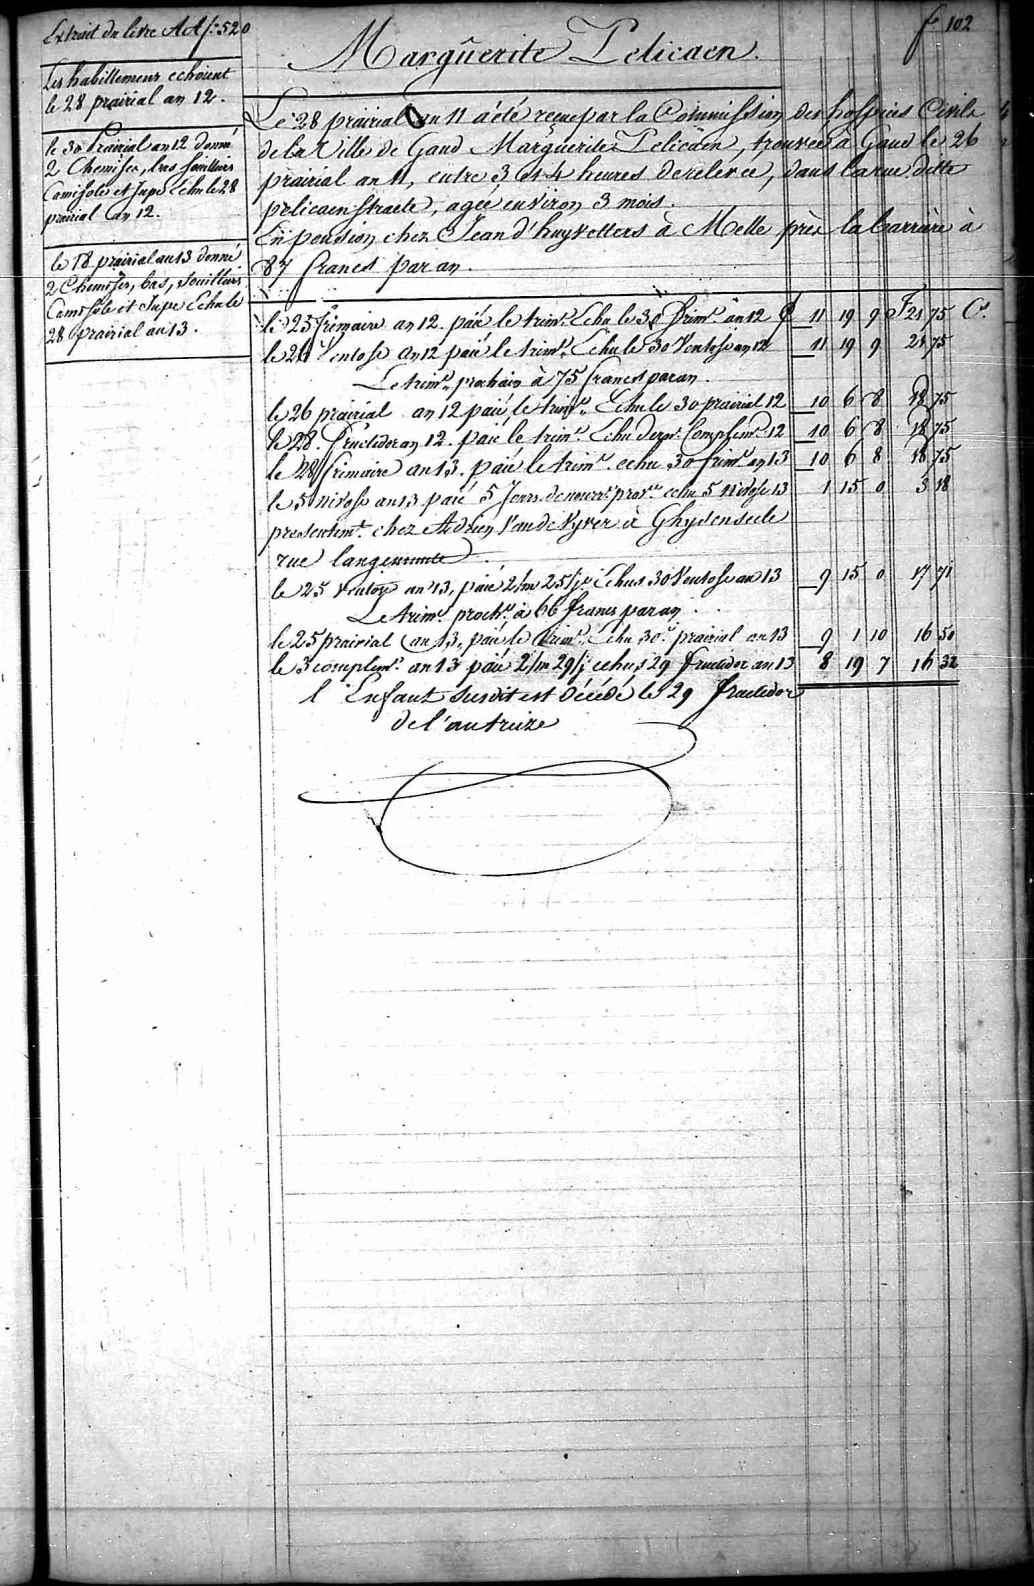 Extrait du livre AA f: 520
f.° 102
Marguerite Pelicaen.
Les habillemens echoient
le 28 prairial an 12.
le 30 Prairial an 12 donné
2 Chemises, bas, souilliers
Camisole et Jupe echu le 28
prairial an 12.
le 18 prairial an 13 donné
2 Chemises, bas, souilliers
Camisole et Jupe Echu le
28 prairial an 13.
Le 28 prairial an 11 a été reçue par la Commission des hospices Civils
de la Ville de Gand Marguerite Pelicaen, trouvée à Gand le 26
prairial an 11, entre 3 et 4 heures de relevée, dans la rue dette
pelicaenstraete, agée environ 3 mois.
En pension chez Jean d'huyvetters à Melle près la barrière à
87 francs par an.
le 25 frimaire an 12. paié le trimre. Echu le 30 frimre an 12 11 19 9 F 21 75 Cs.
le 26 Ventose an 12 paié le trimre. Echu le 30 Ventose an 12 11 19 9 21 75
Le trimre. prochain à 75 francs par an.
le 26 prairial an 12 paié le trimre. Echu le 30 prairial 12 10 6 8 18 75
le 28. Fructidor an 12. paié le trimre. Echu dernr. Complemre. 12 10 6 8 18 75
le 28 frimaire an 13. paié le trimre. echu 30 frimre an 13 10 6 8 18 75
le 5 nivose an 13 paié 5 Jours de nourre. provre. echu 5 nivose 13 1 15 0 3 18
presentemt. chez Adrien Van de Vyver à Ghysenseele
rue langemunte
le 25 ventose an 13, paié 2/m 25/j Echus 30 Ventose an 13 9 15 0 17 71
Le trimre. proch. à 66 francs par an.
le 25 prairial an 13, paié le trimre. Echu 30. prairial an 13 9 1 10 16 50
le 3 complemre. an 13 paié 2/m 29/j echus 29 fructidor an 13 8 19 7 16 32
l'Enfant susdit est décédé le 29 fructidor
de l'an treize